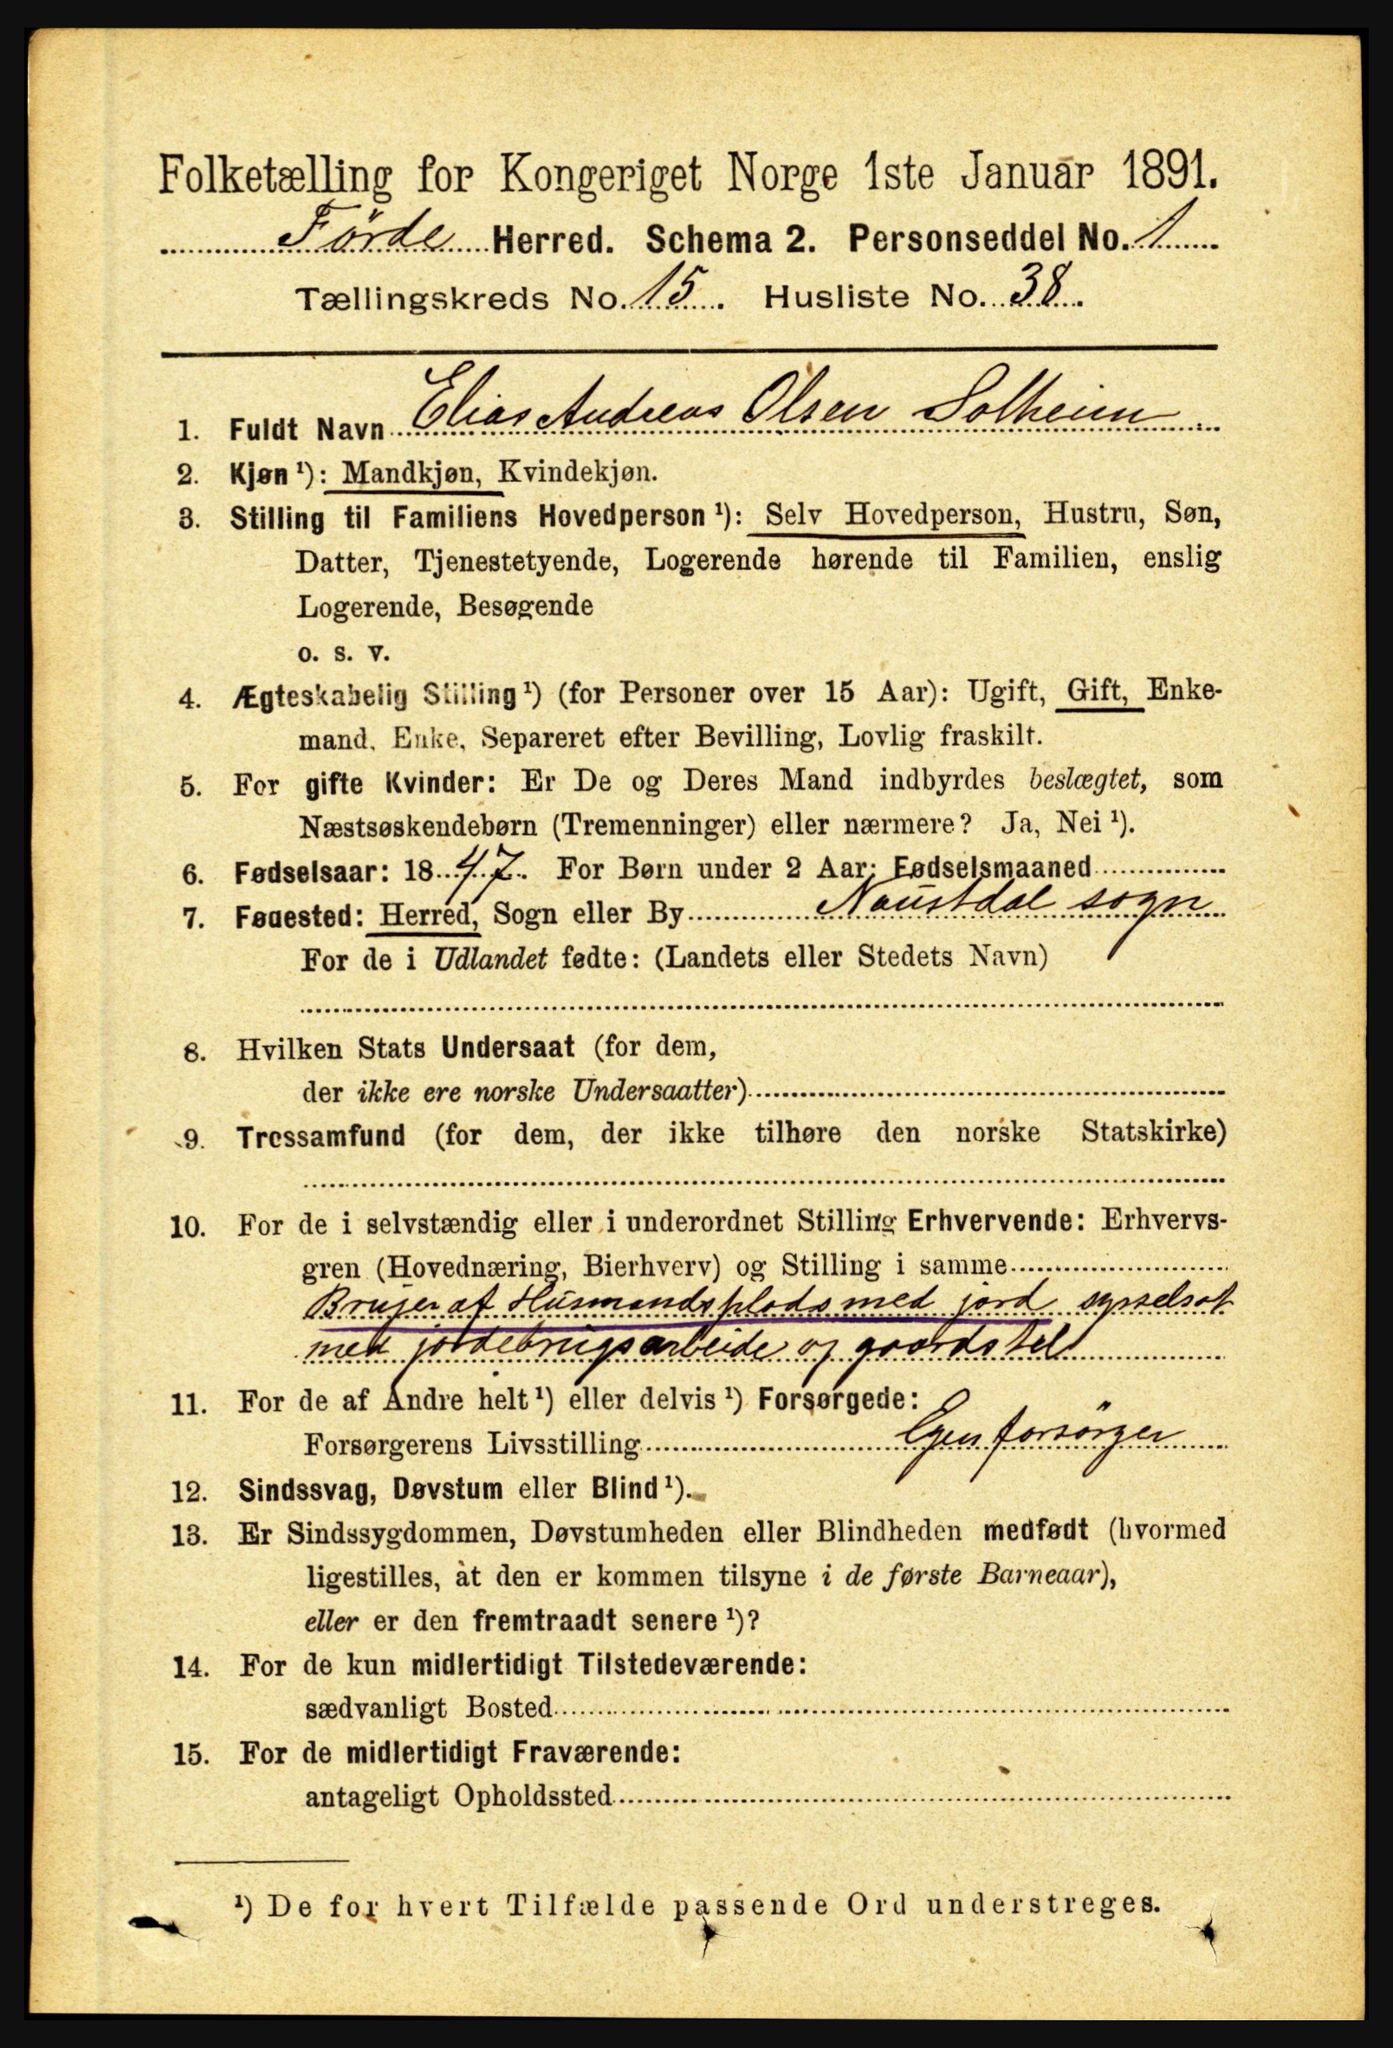 Folketælling for Kongeriget Norge 1ste Januar 1891.
Förde Herred. Schema 2. Personseddel No. 1
Tællingskreds No. 15. Husliste No. 38.
1. Fuldt Navn Elias Andreas Olsen Solheim
2. Kjøn ¹): Mandkjøn, Kvindekjøn.
3. Stilling til Familiens Hovedperson ¹): Selv Hovedperson, Hustru, Søn,
Datter, Tjenestetyende, Logerende hørende til Familien, enslig
Logerende, Besøgende
o. s. v.
4. Ægteskabelig Stilling ¹) (for Personer over 15 Aar): Ugift, Gift, Enke-
mand, Enke, Separeret efter Bevilling, Lovlig fraskilt.
5. For gifte Kvinder: Er De og Deres Mand indbyrdes beslægtet, som
Næstsøskendebørn (Tremenninger) eller nærmere? Ja, Nei ¹).
6. Fødselsaar: 1847. For Børn under 2 Aar: Fødselsmaaned
7. Fødested: Herred, Sogn eller By Naustdal sogn
For de i Udlandet fødte: (Landets eller Stedets Navn)
8. Hvilken Stats Undersaat (for dem,
der ikke ere norske Undersaatter)
9. Trossamfund (for dem, der ikke tilhøre den norske Statskirke)
10. For de i selvstændig eller i underordnet Stilling Erhvervende: Erhvervs-
gren (Hovednæring, Bierhverv) og Stilling i samme
Bruger af Husmandsplads med jord sysselsat
med jordebrugsarbeide og gaardstel
11. For de af Andre helt ¹) eller delvis ¹) Forsørgede:
Forsørgerens Livsstilling Egen forsörger
12. Sindssvag, Døvstum eller Blind ¹).
13. Er Sindssygdommen, Døvstumheden eller Blindheden medfødt (hvormed
ligestilles, at den er kommen tilsyne i de første Barneaar),
eller er den fremtraadt senere ¹)?
14. For de kun midlertidigt Tilstedeværende:
sædvanligt Bosted
15. For de midlertidigt Fraværende:
antageligt Opholdssted
¹) De for hvert Tilfælde passende Ord understreges.